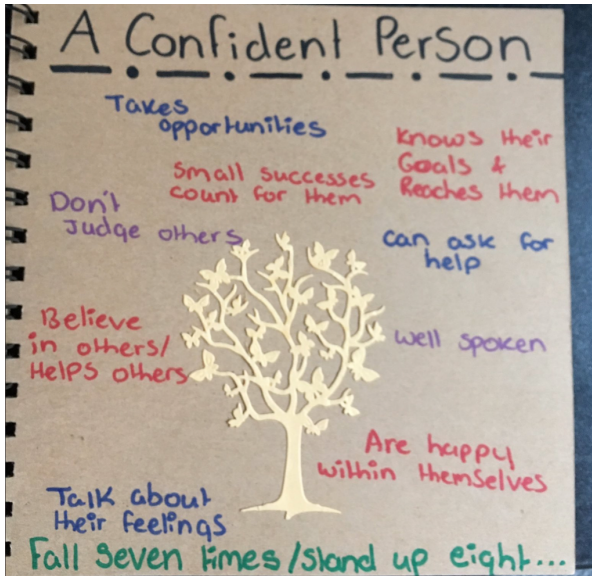 A Confident Person
Takes
opportunities
Knows their
Goals &
Reaches them
Small successes
count for them
Don't
Judge others
can ask for
help
Believe
in others/
Helps others
well spoken
Are happy
within themselves
Talk about
their feelings
Fall seven times/stand up eight...